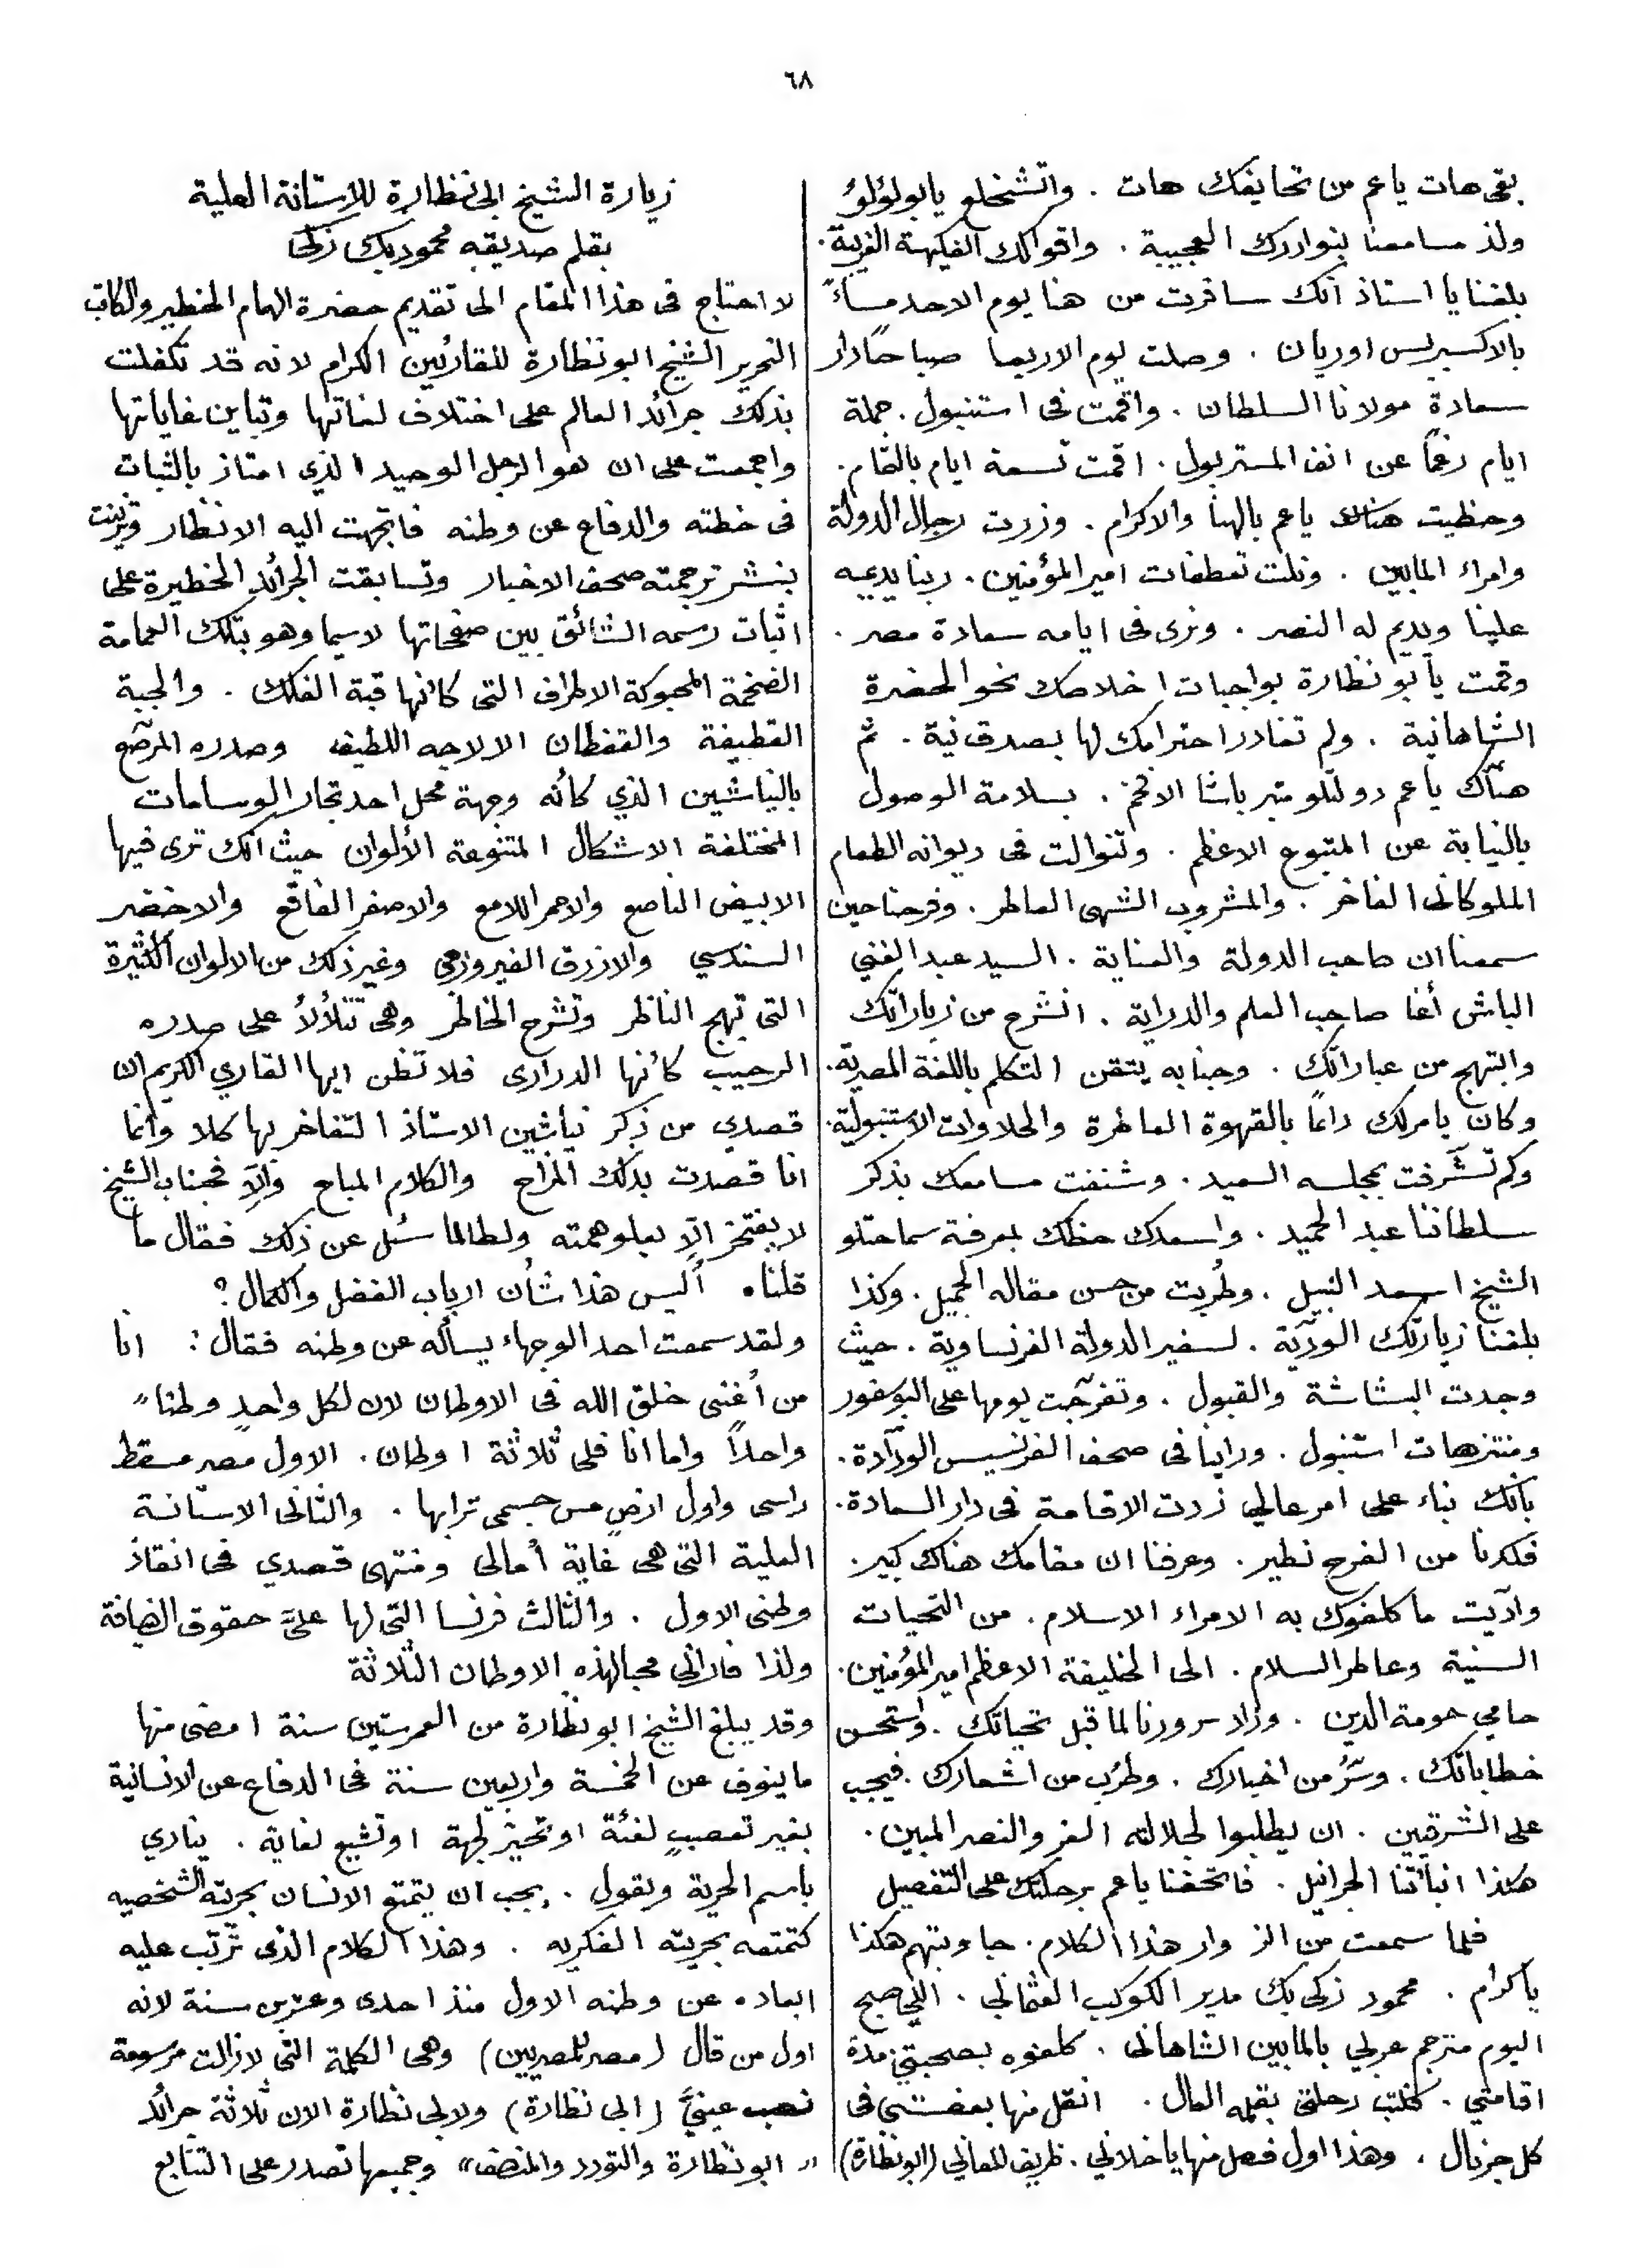 ٦٨
بقى هات ياعم من تحايفك هات . واتشنخلع يابولؤلؤ
ولذ مسامعنا بنواردك العجيبة . واقوالك الفكيهة الغريبة .
بلغنا يا استاذ انك سافرت من هنا يوم الاحد مساءً
بالاكسبريس اوريان . وصلت يوم الاربعا صباحًا دار
سعادة مولانا السلطان . واقمت فى استنبول . جملة
ايام رغمًا عن انف المستربول . اقمت تسعة ايام بالتمام .
وحظيت هناك ياعم بالهنأ والاكرام . وزرت رجال الدولة
وامراء المابين . ونلت تعطفات امير المؤمنين . ربنا يديمه
علينا ويديم له النصر . ونرى فى ايامه سعادة مصر .
وقمت يابو نظارة بواجبات اخلاصك نحو الحضرة
الشاهانية . ولم تغادر احترامك لها بصدق نية . ثم
هنّاك ياعم دولتلو منير باشا الافخم . بسلامة الوصول
بالنيابة عن المتبوع الاعظم . وتنوالت فى ديوانه الطعام
الملوكانى الفاخر . والمشروب الشهى العاطر . وفرحنا حين
سمعنا ان صاحب الدولة والعناية . السيد عبد الغني
الباش أغا صاحب العلم والدراية . انشرح من زياراتك
وابتهج من عباراتك . وجنابه يتقن التكلم باللغة المصرية .
وكان يامرلك داعًا بالقهوة العاطرة والحلاوات الاستنبولية .
وكم تشرّفت بمجلسه السعيد . وشنفت مسامعك بذكر
سلطاننا عبد الحميد . واسعدك حظك بمعرفة سماحتلو
الشيخ اسعد النبيل . وطُربت من حسن مقاله الجميل . وكذا
بلغنا زيارتك الوديّة . لسفير الدولة الفرنساوية . حيث
وجدت البشاشة والقبول . وتفرّجت يومها على البوغفور
ومنتزهات استنبول . وراينا فى صحف الفرنسيس الودّادة .
بانك بناء على امر عالي زردت الاقامة فى دار السعادة .
فكدنا من الفرح نطير . وعرفنا ان مقامك هناك كبير .
وادّيت ما كلفوك به الامراء الاسلام . من التحيات
السنية وعاطر السلام . الى الخليفة الاعظم امير المؤمنين .
حامي حومة الدين . وزاد سرورنا لما قبل تحياتك . واستحسن
خطاباتك . وسُرّ من اخبارك . وطرُب من اشعارك . فيجب
على الشرقيين . ان يطلبوا لجلالته العز والنصر المبين .
هكذا انبأتنا الجرانيل . فاتحفنا ياعم برحلتك على التفصيل
فلما سمعت من الزوار هذا الكلام . جاوبتهم هكذا
ياكرام . محمود زكى بك مدير الكوكب العثمانى . اللي صبح
اليوم مترجم عربي بالمابين الشاهانى . كلفوه بصحبتي مدة
اقامتي . فكتب رحلتى بقلمه العال . انقل منها بعض شى فى
كل جرنال . وهذا اول فصل منها ياخلاني . ظريف المعاني (ابونظارة)
زيارة الشيخ ابى نظارة للاستانة العلية
بقلم صديقه محمود بك زكى
لا احتاج فى هذا المقام الى تقديم حضرة الهمام الخطير والكاتب
النحرير الشيخ ابو نظارة للقارئين الكرام لانه قد تكفلت
بذلك جرائد العالم على اختلاف لغاتها وتباين غاياتها
واجمعت على ان هو الرجل الوحيد الذي امتاز بالثبات
فى خطته والدفاع عن وطنه فاتجهت اليه الانظار وتزينت
بنشر ترجمته صحف الاخبار وتسابقت الجرائد الخطيرة على
اثبات رسمه الشائق بين صفحاتها لاسيما وهو بتلك العمامة
الضخمة المحبوكة الاطراف التى كانها قبة الفلك . والجبة
القطيفة والقفطان الالاجه اللطيف وصدره المرصّع
بالنياشين الذي كأنه وجهة محل احد تجار الوسامات
المختلفة الاشكال المتنوعة الألوان حيث انك ترى فيها
الابيض الناصع والاحمر اللامع والاصفر الفاقع والاخضر
السندسي والازرق الفيروزجى وغير ذلك من الالوان الكثيرة
التى تبهج الناظر وتشرح الخاطر وهى تتلألأ على صدره
الرحيب كأنها الدرارى فلا تظن ايها القاري الكريم ان
قصدي من ذكر نياشين الاستاذ التفاخر بها كلا وانما
انا قصدت بذلك المزاح والكلام المباح والّا فجناب الشيخ
لا يفتخر الّا بعلو همته ولطالما سُئل عن ذلك فقال ما
قلناه أليس هذا شأن ارباب الفضل والكمال ؟
ولقد سمعت احد الوجهاء يسأله عن وطنه فقال : انا
من أغنى خلق الله فى الاوطان لان لكل واحدٍ وطنا"
واحدًا واما انا فلى ثلاثة اوطان . الاول مصر مسقط
راسى واول ارضٍ مس جسمى ترابها . والثانى الاستانة
العلية التى هى غاية أمالى ومنتهى قصدي فى انقاذ
وطنى الاول . والثالث فرنسا التى لها علىَّ حقوق الضيافة
ولذا فانى محبا لهذه الاوطان الثلاثة
وقد يبلغ الشيخ ابو نظارة من العمر ستين سنة امضى منها
ما ينوف عن الخمسة واربعين سنة فى الدفاع عن الانسانية
بغير تعصبٍ لفئة او تحيز لجهة او تشيع لغاية . ينادي
باسم الحرية ويقول . يجب ان يتمتع الانسان بحريته الشخصيه
كتمتعه بحريته الفكريه . وهذا الكلام الذى ترّتب عليه
ابعاده عن وطنه الاول منذ احدى وعشرين سنة لانه
اول من قال (مصر للمصريين) وهى الكلمة التى لازالت مرسومة
نصب عينيَّ (ابى نظارة) ولابى نظارة الان ثلاثة جرائد
" ابو نظارة والتودد والمنصف" وجميعها تصدر على التتابع